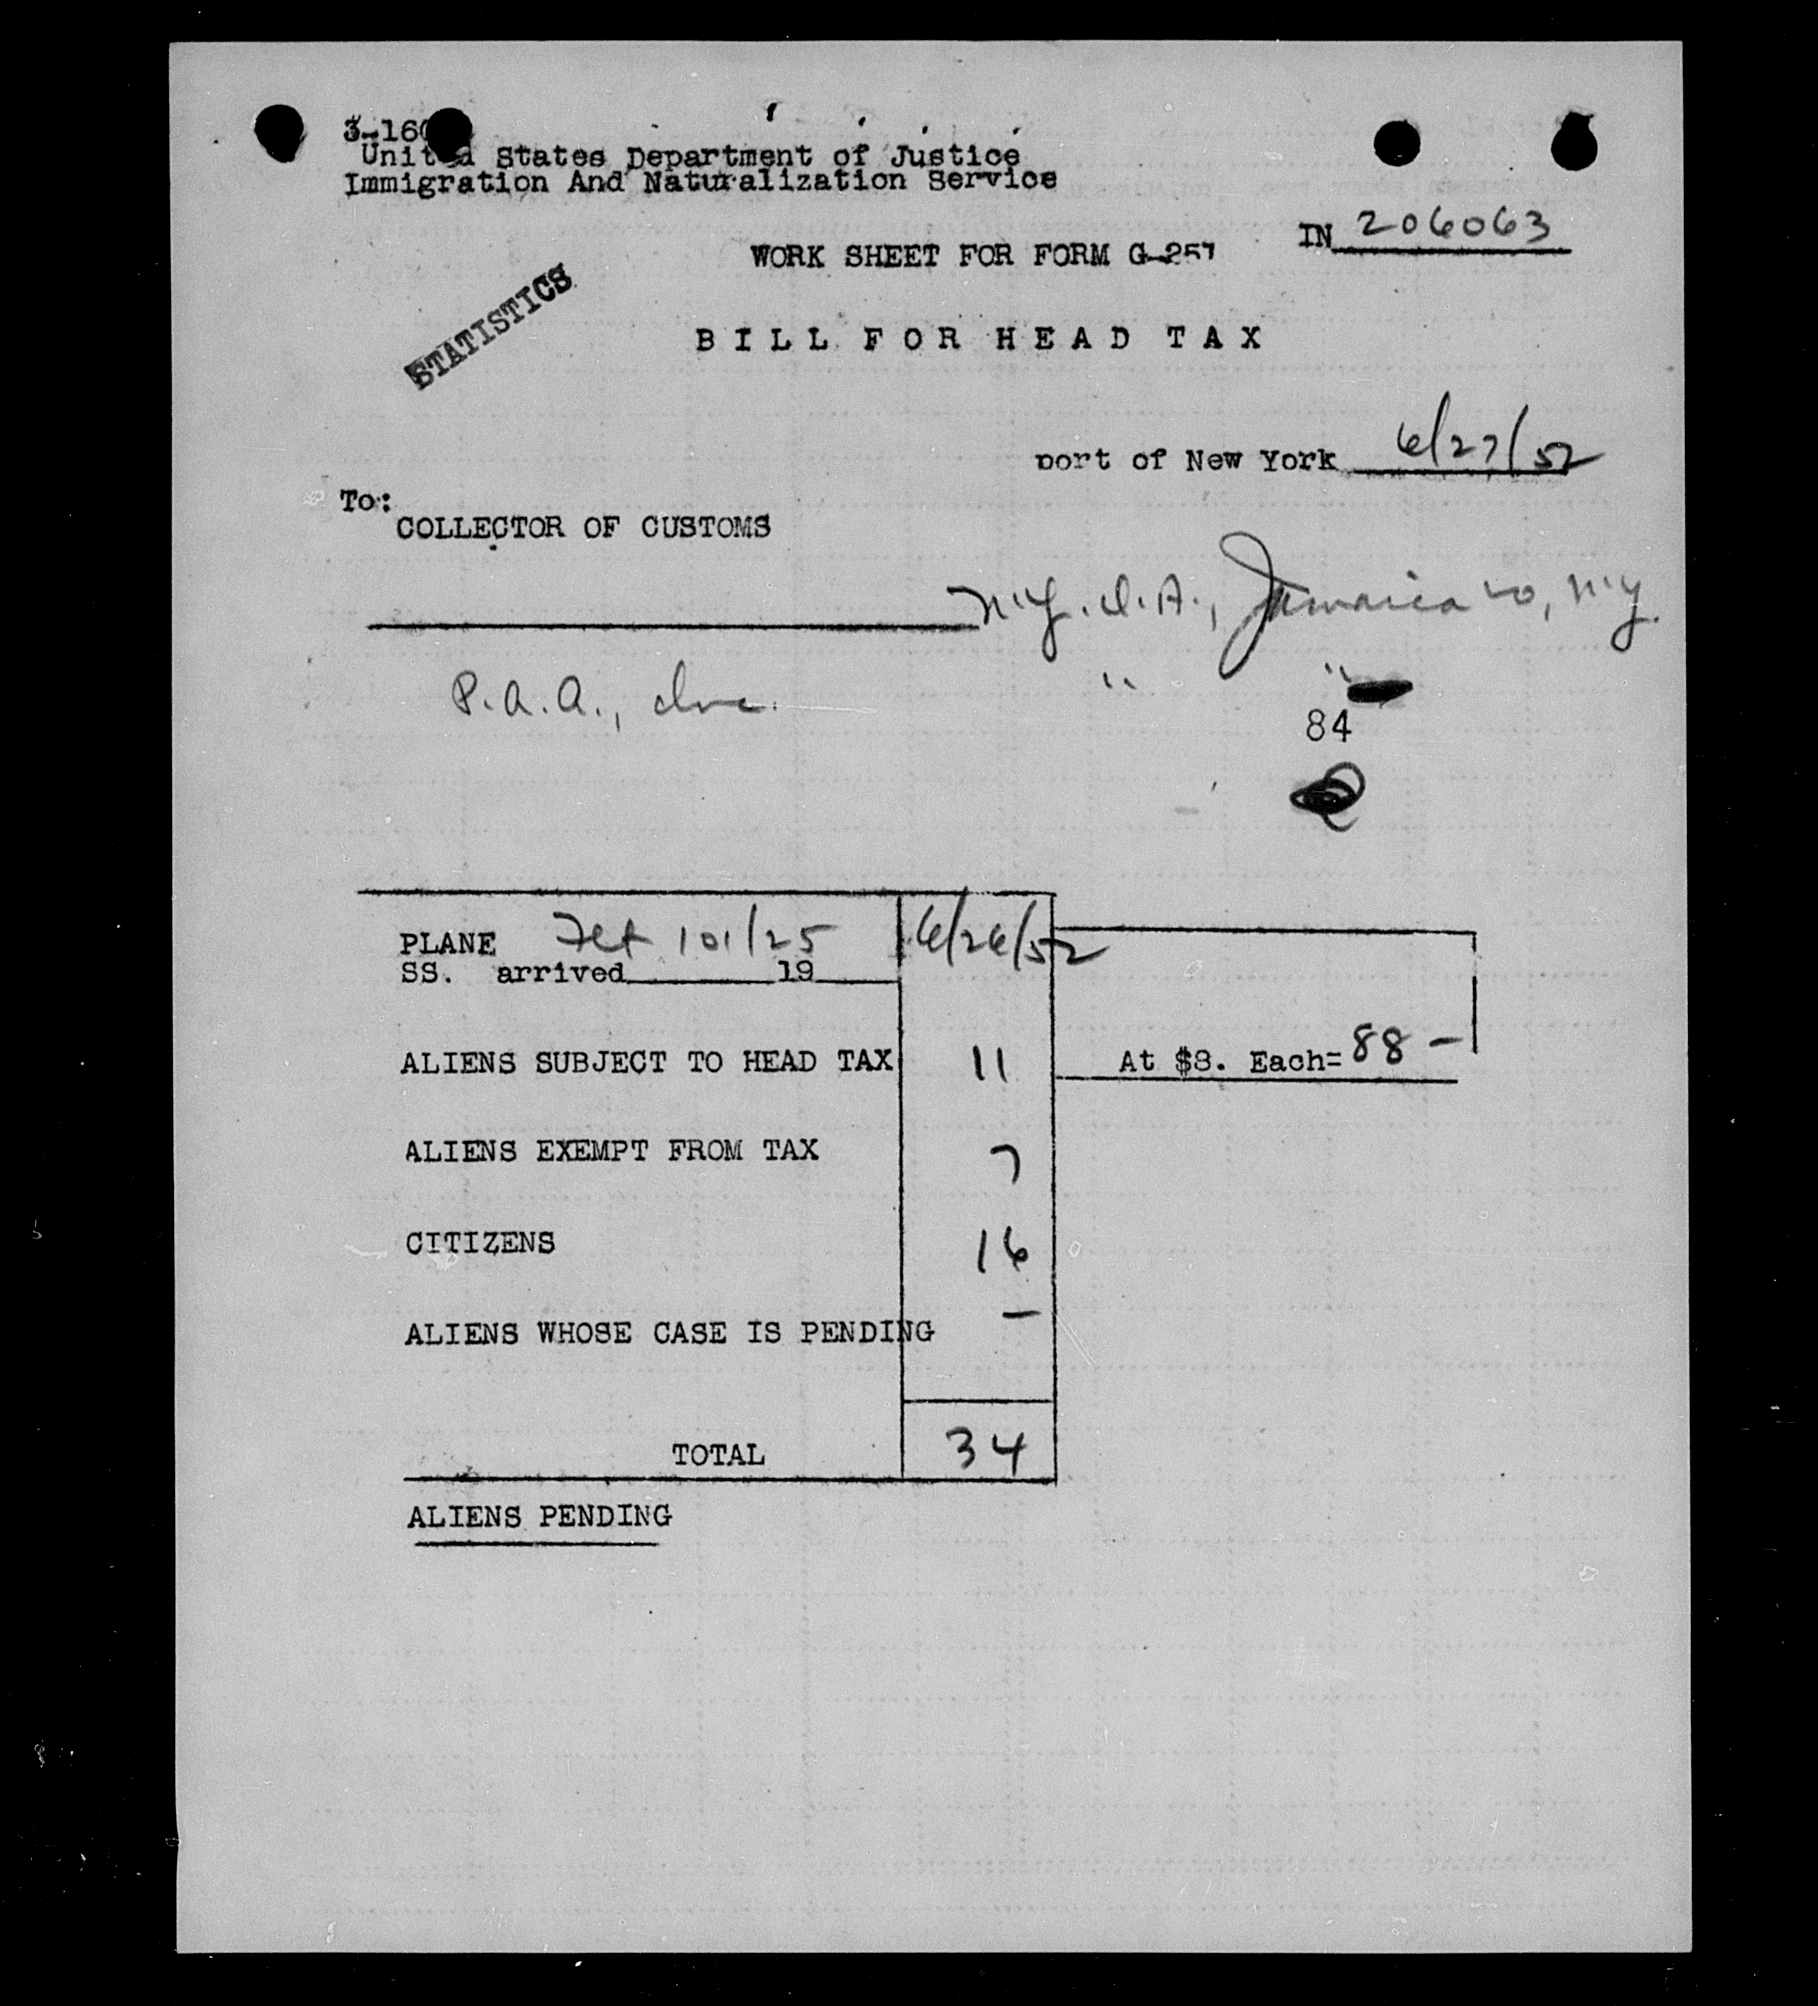 3-160
United States Department of Justice
Immigration And Naturalization Service
IN 206063
WORK SHEET FOR FORM G-257
STATISTICS
BILL FOR HEAD TAX
port of New York 6/27/52
To:
COLLECTOR OF CUSTOMS
N.Y. I.A., Jamaica 20, N.Y.
P.A.A., Inc. " "
84
PLANE Flt 101/25 6/26/52
SS. arrived 19
ALIENS SUBJECT TO HEAD TAX 11 At $8. Each= 88 —
ALIENS EXEMPT FROM TAX 7
CITIZENS 16
ALIENS WHOSE CASE IS PENDING —
TOTAL 34
ALIENS PENDING